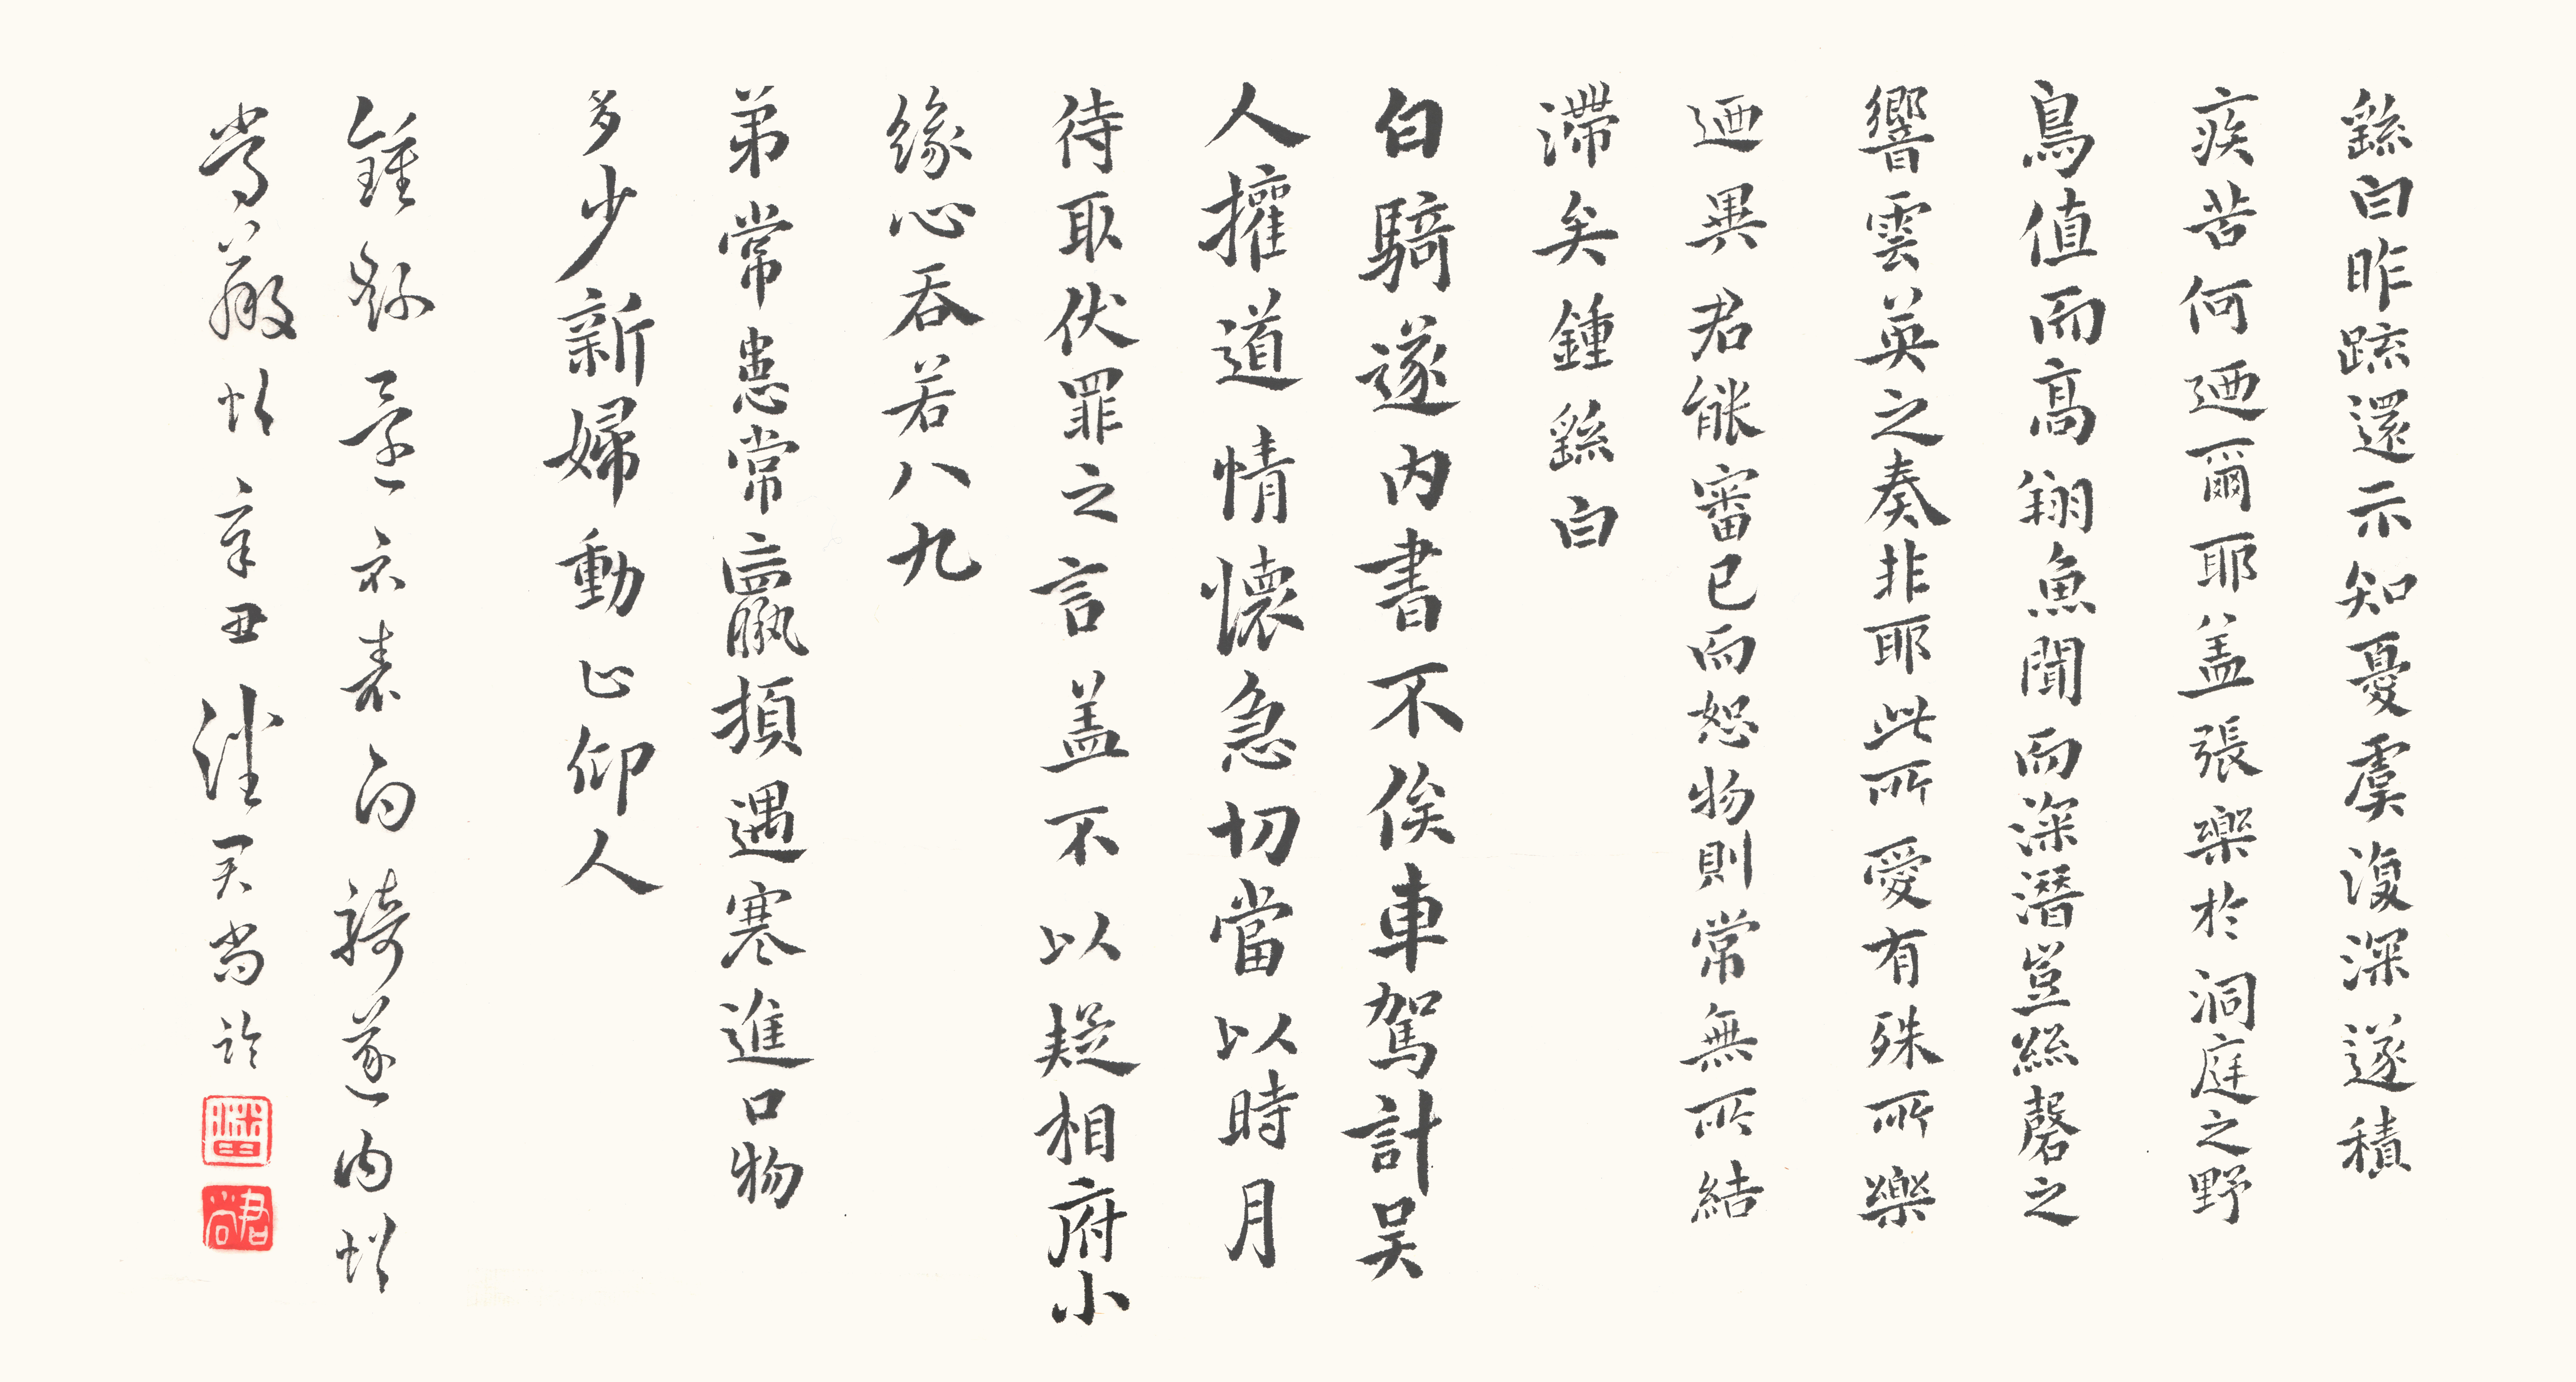 繇白昨疏還示知憂虞復深遂積
疾苦何迺爾耶盖張樂於洞庭之野
鳥值而高翔魚聞而深潛豈絲磬之
響雲英之奏非耶此所愛有殊所樂
迺異君能審己而恕物則常無所結
滯矣鍾繇白
白騎遂內書不俟車駕計吴
人攉道情懷急切當以時月
待取伏罪之言盖不以疑相府小
緣心吞若八九
弟常患常羸頓遇寒進口物
多少新婦動止仰人
鍾繇還示表白騎遂內帖
常羸帖辛丑潘君尚臨
潘
君尚